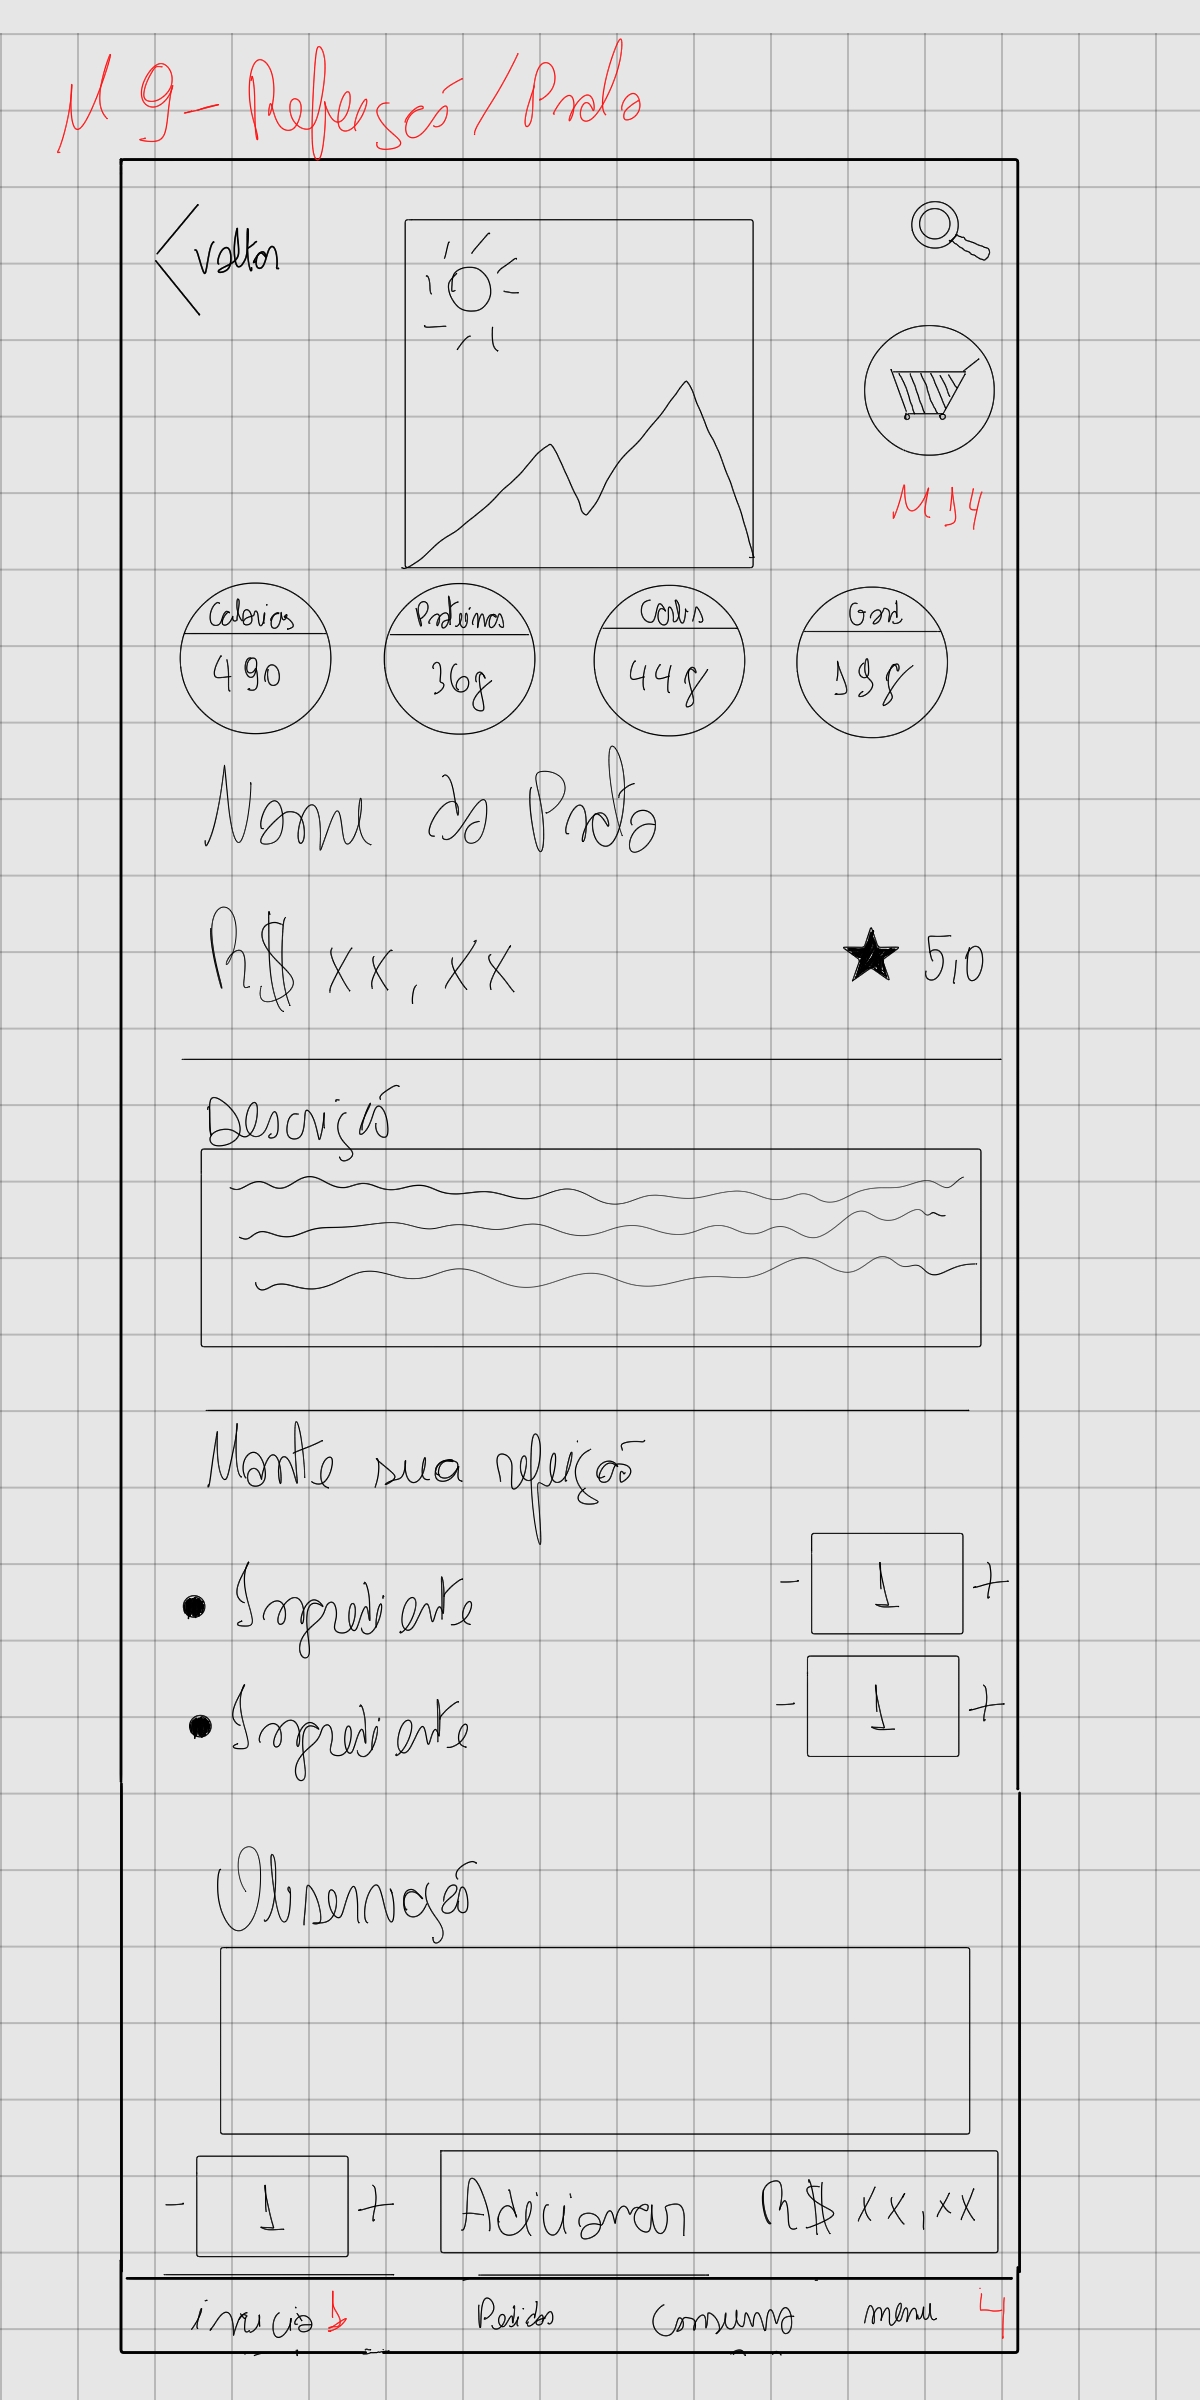 M 9 - Refeição / Prato
< voltar
M 14
Calorias Proteinas Carbs Gord
490 36g 44g 19g
Nome do Prato
R$ xx, xx ★ 5,0
Descrição
Monte sua refeição
• Ingrediente - 1 +
• Ingrediente - 1 +
Observação
- 1 + Adicionar R$ xx,xx
inicio 1 Pedidos Consumo menu 4